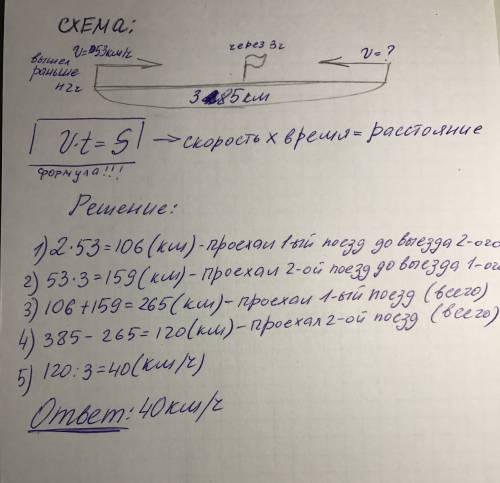 СХЕМА:
v=53км/ч
через 3ч
v=?
вышел
раньше
н 2ч
385км
v·t=S → скорость х время = расстояние
формула!!!
Решение:
1) 2·53=106(км)-проехал 1-ый поезд до выезда 2-ого
2) 53·3=159(км)-проехал 2-ой поезд до выезда 1-ог
3) 106+159=265(км)-проехал 1-ый поезд (всего)
4) 385-265=120(км)-проехал 2-ой поезд (всего)
5) 120:3=40(км/ч)
Ответ: 40км/ч